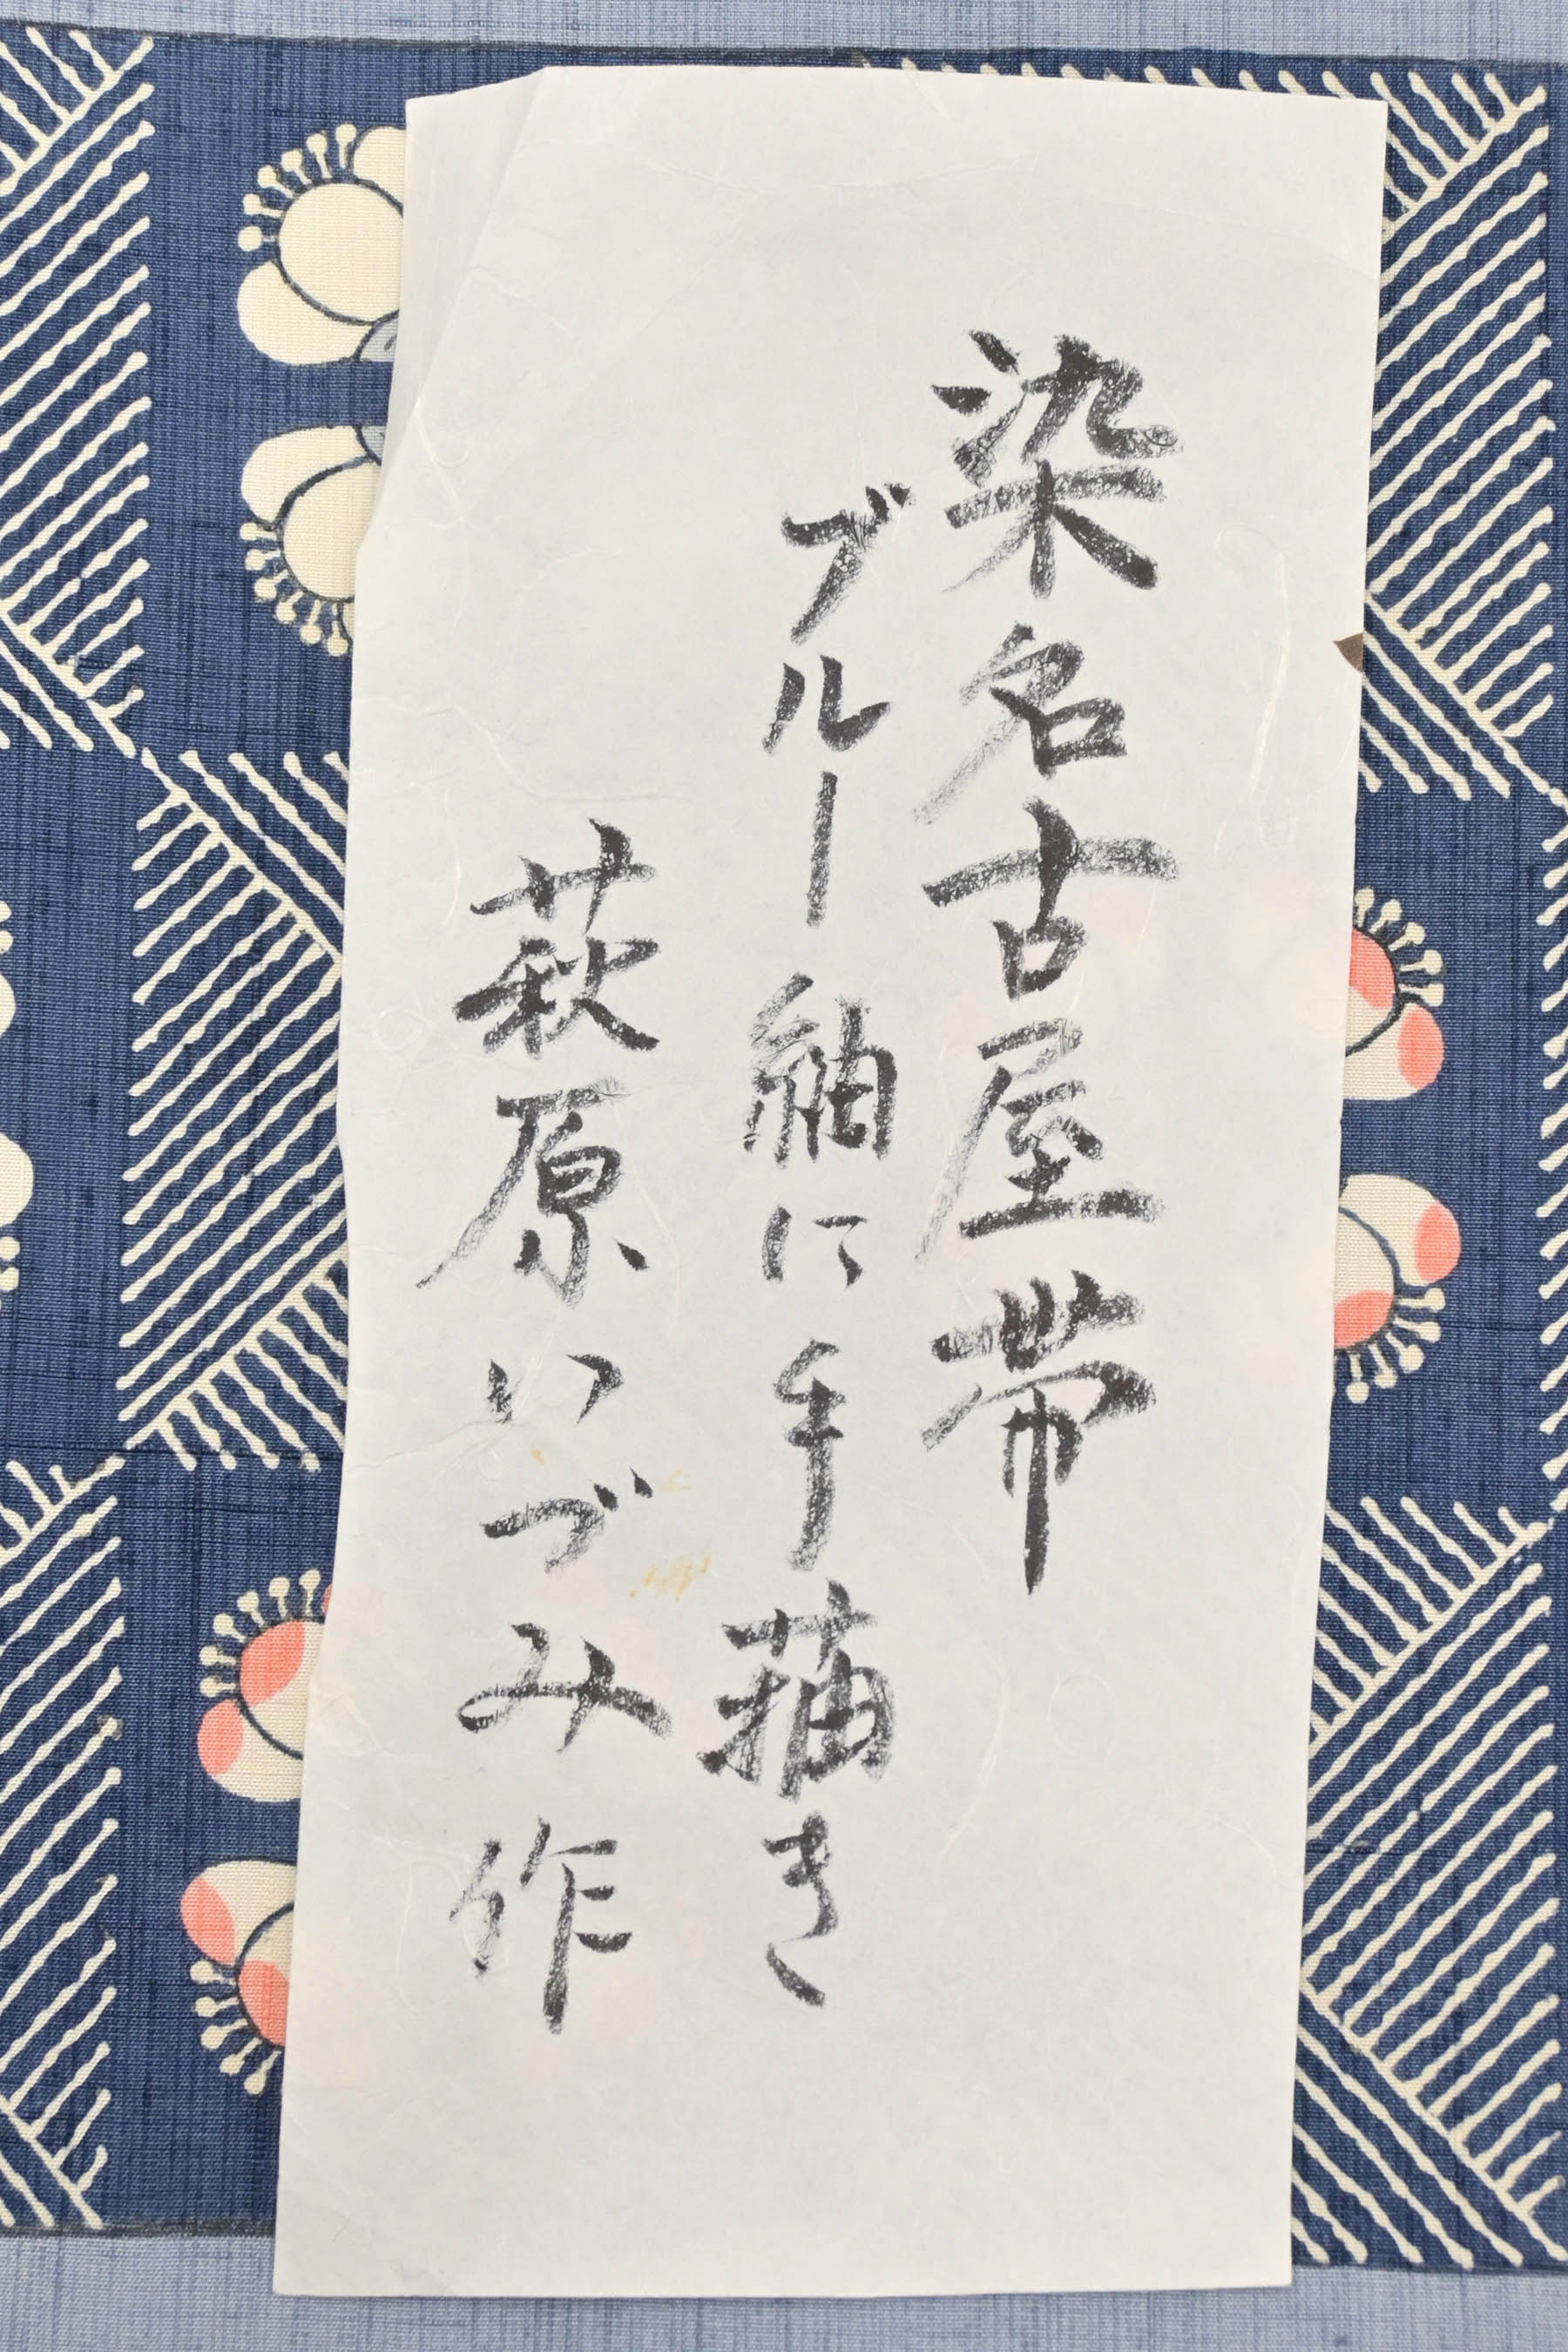 染名古屋帯
ブルー紬に手描き
萩原いづみ作